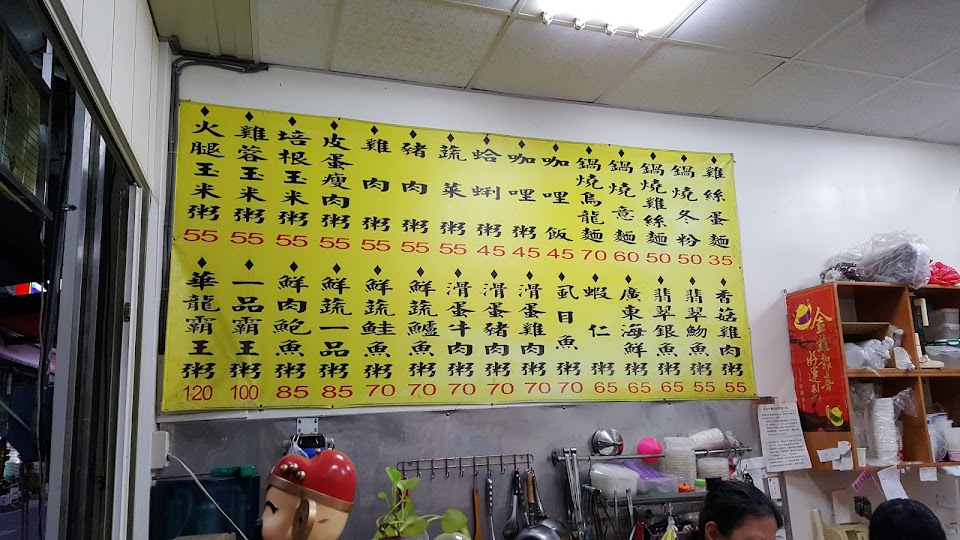 火腿玉米粥 55
雞蓉玉米粥 55
培根玉米粥 55
皮蛋瘦肉粥 55
雞肉粥 55
豬肉粥 55
蔬菜粥 55
蛤蜊粥 45
咖哩粥 45
咖哩飯 45
鍋燒烏龍麵 70
鍋燒意麵 60
鍋燒雞絲麵 50
鍋燒冬粉 50
雞絲蛋麵 35
華龍霸王粥 120
一品霸王粥 100
鮮肉鮑魚粥 85
鮮蔬一品粥 85
鮮蔬鮭魚粥 70
鮮蔬鱸魚粥 70
滑蛋牛肉粥 70
滑蛋豬肉粥 70
滑蛋雞肉粥 70
虱目魚粥 70
蝦仁粥 65
廣東海鮮粥 65
翡翠銀魚粥 65
翡翠魩魚粥 55
香菇雞肉粥 55
金雞報喜
好運到